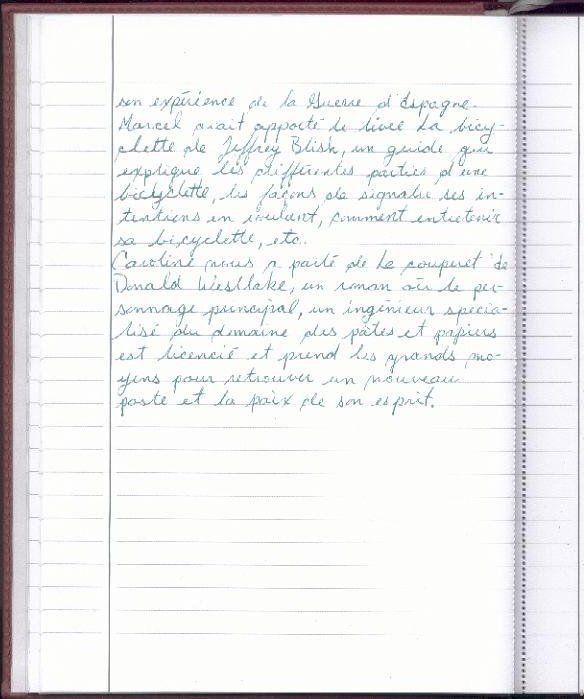 son expérience de la Guerre d'Espagne.
Marcel avait apporté le livre La bicy-
clette de Jeffrey Blish, un guide qui
explique les différentes parties d'une
bicyclette, les façons de signaler ses in-
tentions en roulant, comment entretenir
sa bicyclette, etc.
Caroline nous a parlé de Le couperet de
Donald Westlake, un roman où le per-
sonnage principal, un ingénieur spécia-
lisé du domaine des pâtes et papiers
est licencié et prend les grands mo-
yens pour retrouver un nouveau
poste et la paix de son esprit.